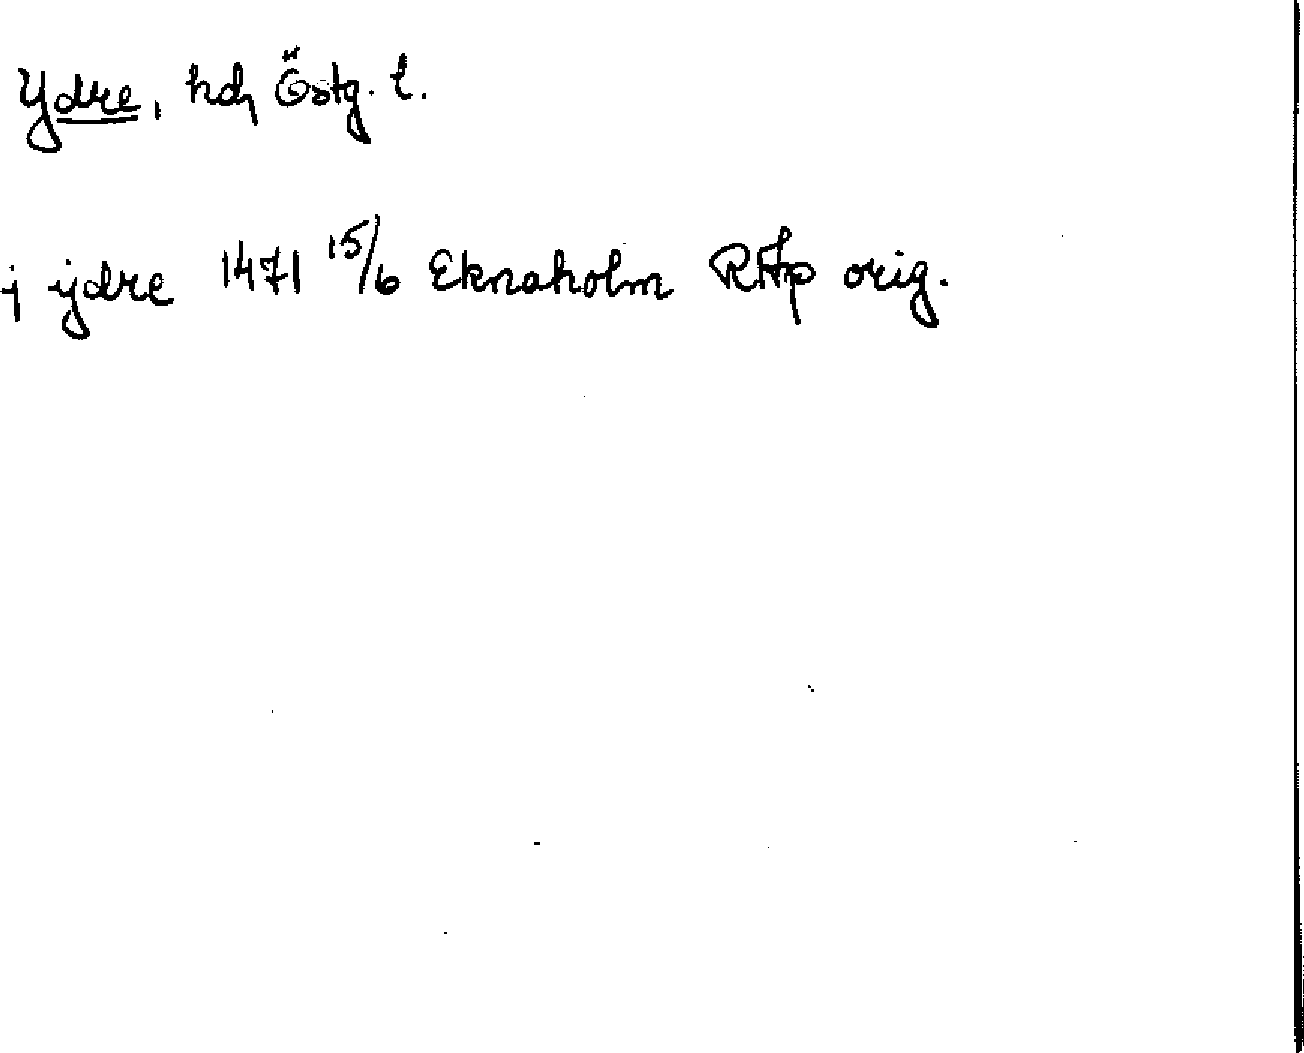 Ydre, hd, Östg. l.
j ydre 1471 15/6 Eknaholm RAp orig.